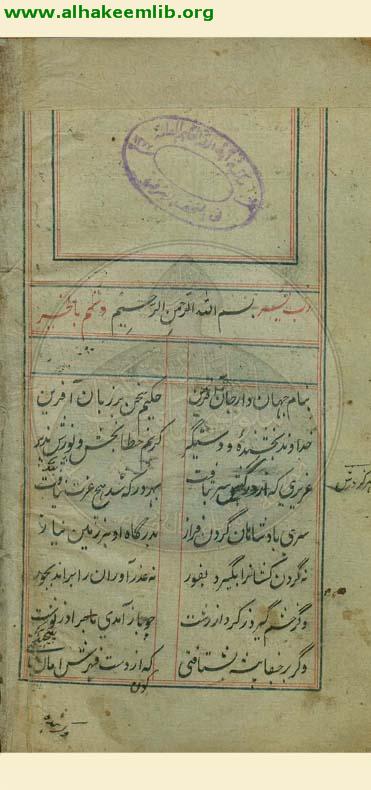 www.alhakeemlib.org
رب یسر بسم الله الرحمن الرحیم و تمم بالخیر
بنام جهاندار جان آفرین حکیم سخن بر زبان آفرین
خداوند بخشنده و دستگیر کریم خطا بخش و پوزش پذیر
عزیزی که از درگهش سر بتافت بهر در که شد هیچ عزت نیافت
سر پادشاهان گردن فراز بدرگاه او بر زمین نیاز
نه گردن کشانرا بگیرد بفور نه عذر آوران را براند بجور
وگر خشم گیرد ز کردار زشت چو باز آمدی ماجرا در نوشت
وگر بر جفا پیشه بشتافتی که از دست قهرش امان یافتی